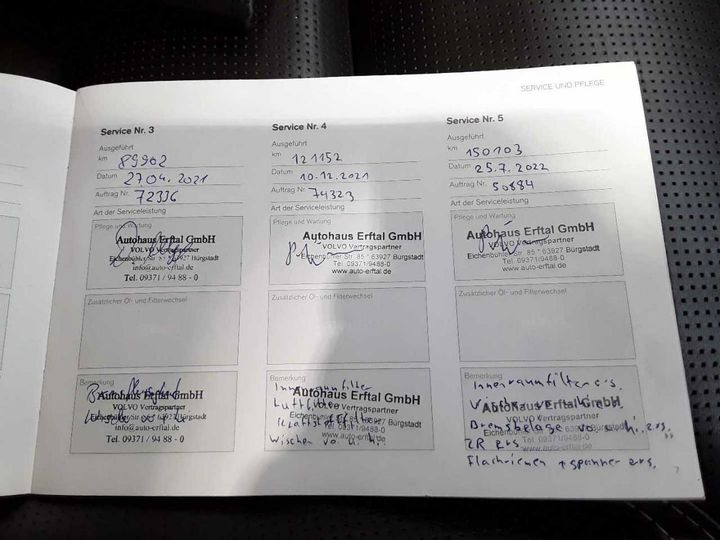 SERVICE UND PFLEGE
Service Nr. 3
Ausgeführt
km 89902
Datum 27.04.2021
Auftrag Nr. 72336
Art der Serviceleistung
Pflege und Wartung
Autohaus Erftal GmbH
VOLVO Vertragspartner
Eichenbühler Str. 85 * 63927 Bürgstadt
info@auto-erftal.de
Tel. 09371 / 94 88 - 0
Zusätzlicher Öl- und Filterwechsel
Bemerkung
Bremsflüssigkeit
Autohaus Erftal GmbH
VOLVO Vertragspartner
Eichenbühler Str. 85 * 63927 Bürgstadt
info@auto-erftal.de
Tel. 09371 / 94 88 - 0
Service Nr. 4
Ausgeführt
km 121152
Datum 10.12.2021
Auftrag Nr. 74323
Art der Serviceleistung
Pflege und Wartung
Autohaus Erftal GmbH
VOLVO Vertragspartner
Eichenbühler Str. 85 * 63927 Bürgstadt
Tel. 09371/9488-0
www.auto-erftal.de
Zusätzlicher Öl- und Filterwechsel
Bemerkung
Innenraumfilter
Autohaus Erftal GmbH
Luftfilter
VOLVO Vertragspartner
Eichenbühler Str. 85 * 63927 Bürgstadt
Kraftstofffilter
Tel. 09371/9488-0
www.auto-erftal.de
Wischer vo. u. hi.
Service Nr. 5
Ausgeführt
km 150103
Datum 25.7.2022
Auftrag Nr. 50884
Art der Serviceleistung
Pflege und Wartung
Autohaus Erftal GmbH
VOLVO Vertragspartner
Eichenbühler Str. 85 * 63927 Bürgstadt
Tel. 09371/9488-0
www.auto-erftal.de
Zusätzlicher Öl- und Filterwechsel
Bemerkung
Innenraumfilter ers.
Wischer vo. u. hi.
Autohaus Erftal GmbH
VOLVO Vertragspartner
Bremsbeläge vo. u. hi. ers.
Tel. 09371/9488-0
ZR ers
www.auto-erftal.de
Flachriemen + spanner ers.
7